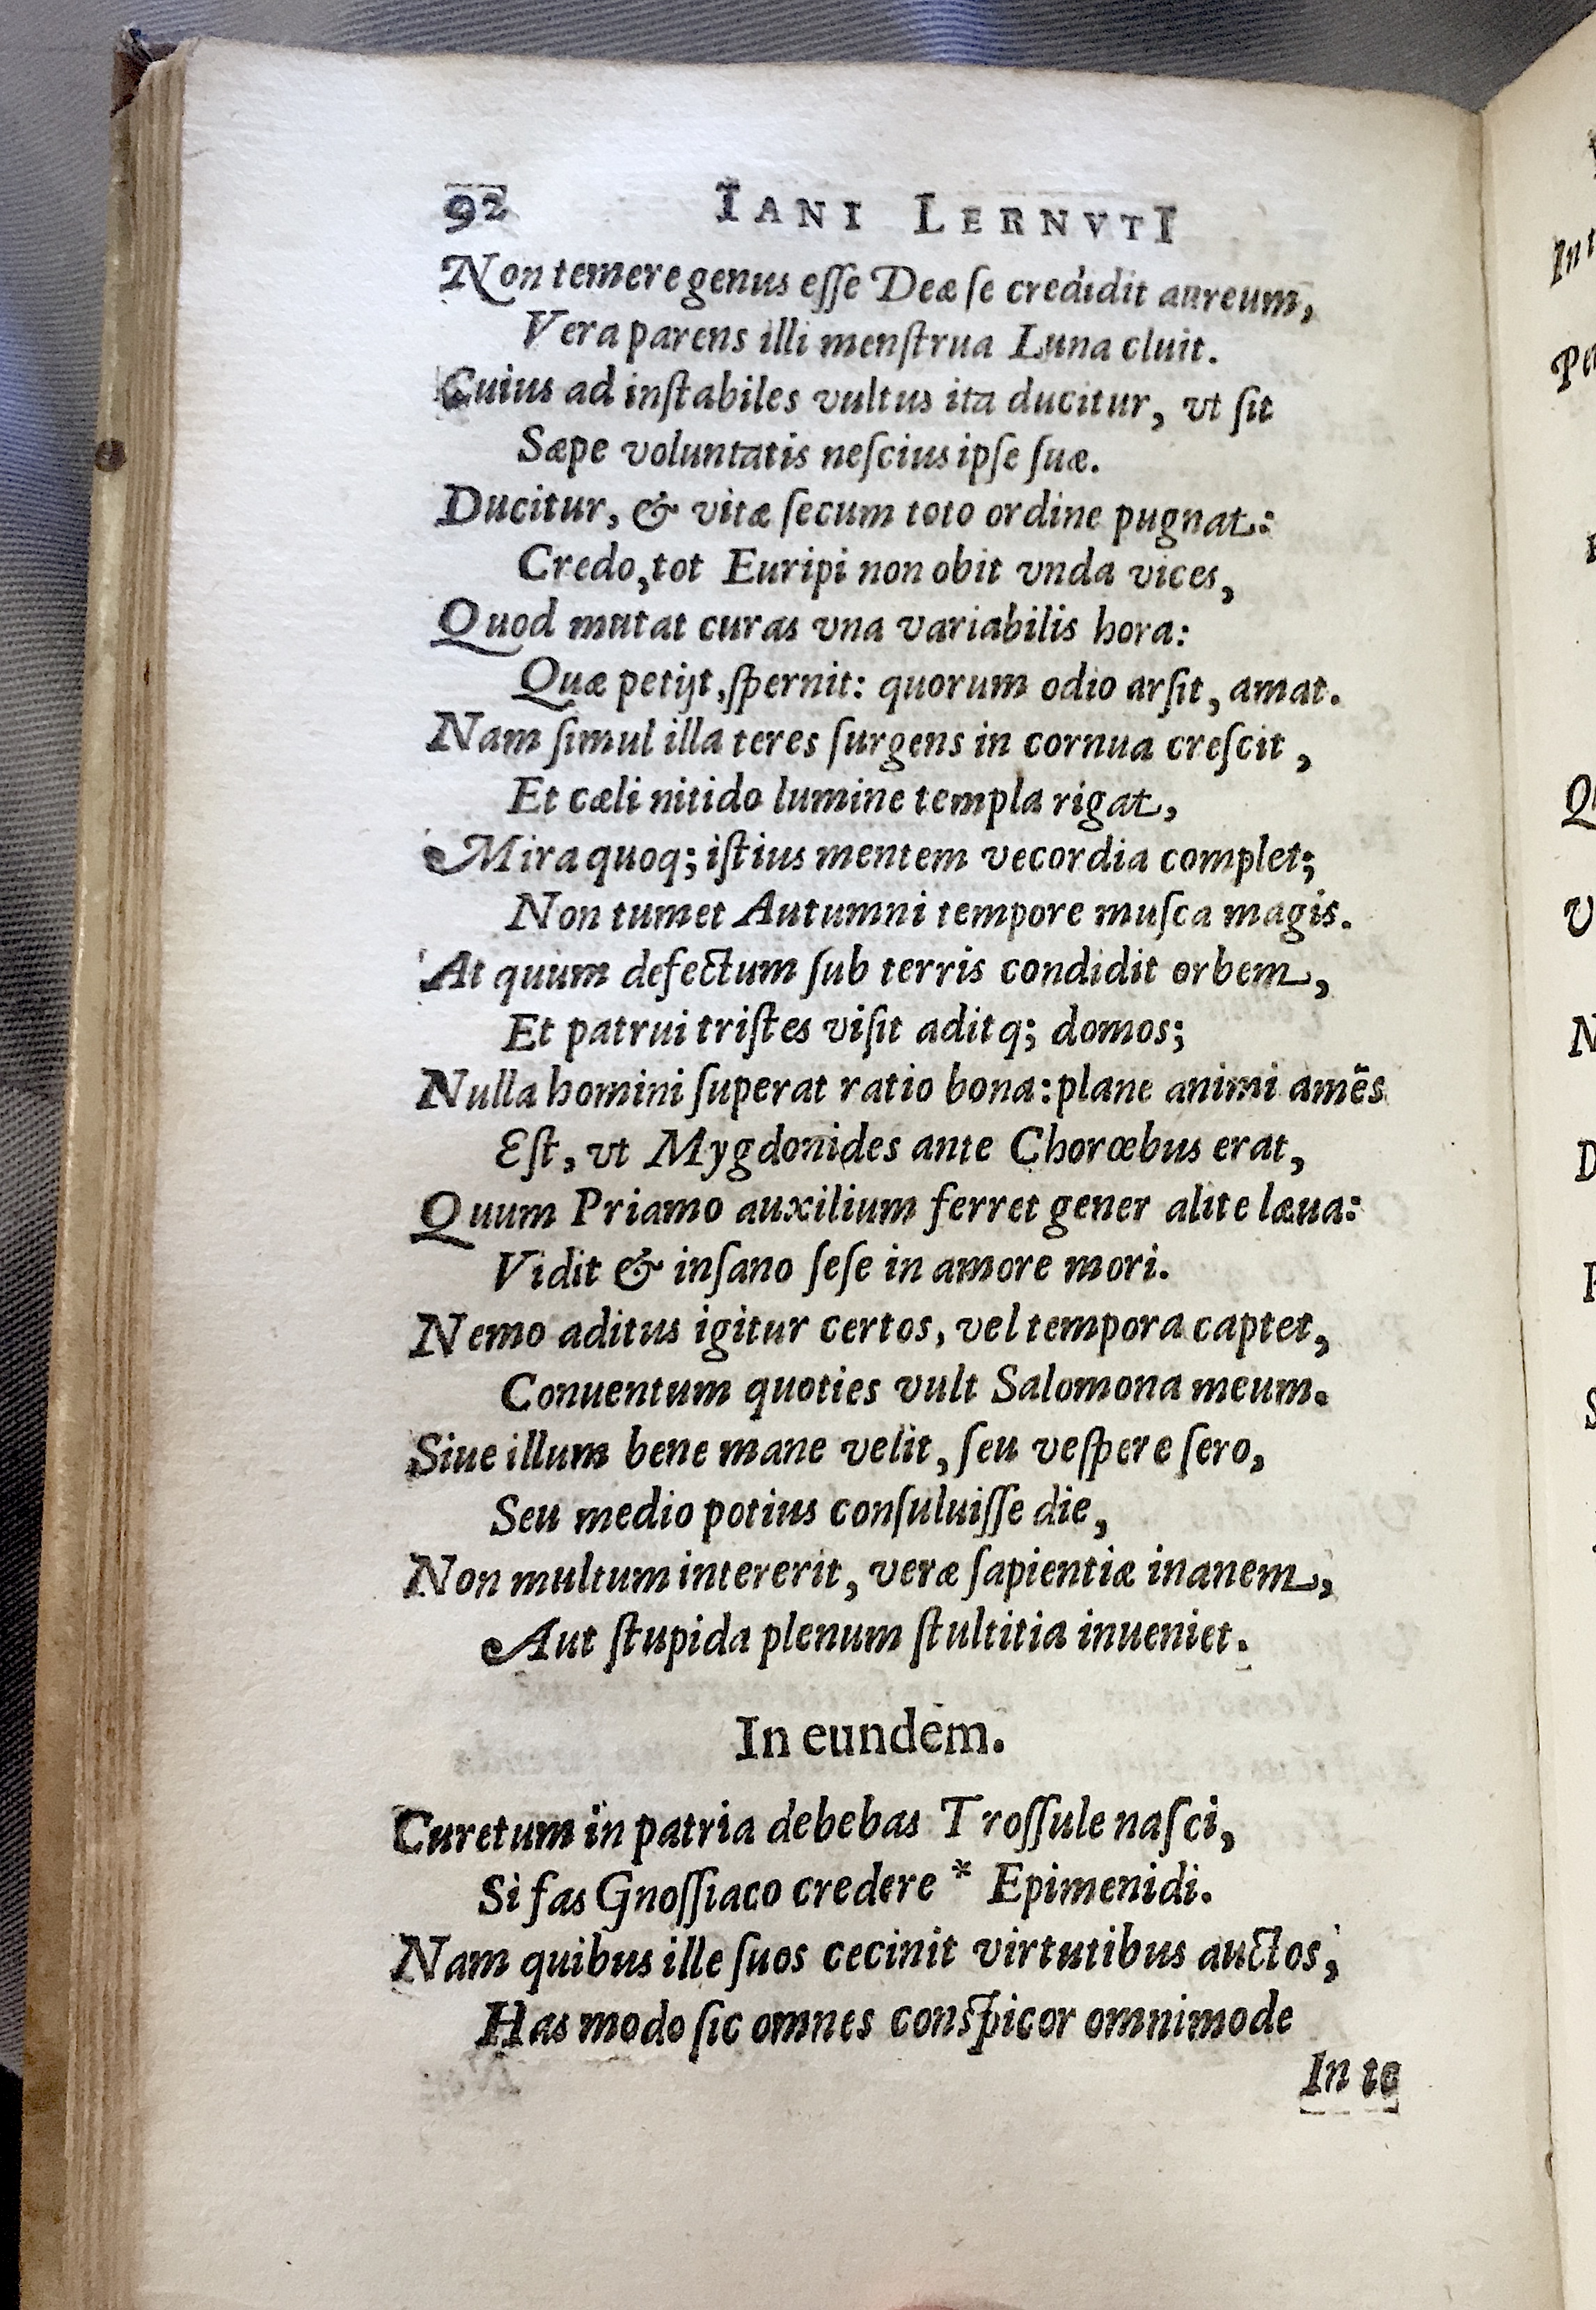 92 IANI LERNVTI
Non temere genus eſſe Deæ ſe credidit aureum,
Vera parens illi menſtrua Luna cluit.
Cuius ad inſtabiles vultus ita ducitur, vt ſit
Sæpe voluntatis neſcius ipſe ſuæ.
Ducitur, & vitæ ſecum toto ordine pugnat:
Credo, tot Euripi non obit vnda vices,
Quod mutat curas vna variabilis hora:
Quæ petijt, ſpernit: quorum odio arſit, amat.
Nam ſimul illa teres ſurgens in cornua creſcit,
Et cæli nitido lumine templa rigat,
Mira quoq; iſtius mentem vecordia complet;
Non tumet Autumni tempore muſca magis.
At quum defectum ſub terris condidit orbem,
Et patrui triſtes viſit aditq; domos;
Nulla homini ſuperat ratio bona: plane animi amēs
Eſt, vt Mygdonides ante Chorœbus erat,
Quum Priamo auxilium ferret gener alite læua:
Vidit & inſano ſeſe in amore mori.
Nemo aditus igitur certos, vel tempora captet,
Conuentum quoties vult Salomona meum.
Siue illum bene mane velit, ſeu veſpere ſero,
Seu medio potius conſuluiſſe die,
Non multum intererit, veræ ſapientiæ inanem,
Aut ſtupida plenum ſtultitia inueniet.
In eundem.
Curetum in patria debebas Troſſule naſci,
Si fas Gnoſſiaco credere * Epimenidi.
Nam quibus ille ſuos cecinit virtutibus auctos,
Has modo ſic omnes conſpicor omnimode
In te